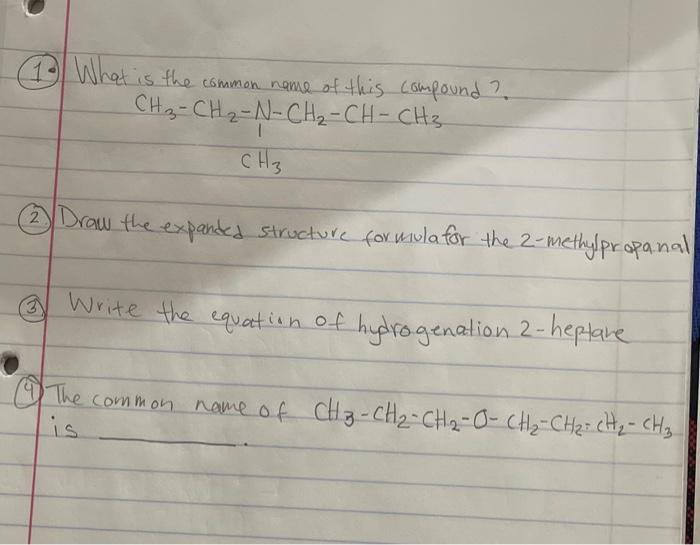 1. What is the common name of this compound?.
CH3-CH2-N-CH2-CH-CH3
CH3
2 Draw the expanded structure formula for the 2-methylpropanal
3 Write the equation of hydrogenation 2-heptane
4 The common name of CH3-CH2-CH2-O-CH2-CH2-CH2-CH3
is ________.